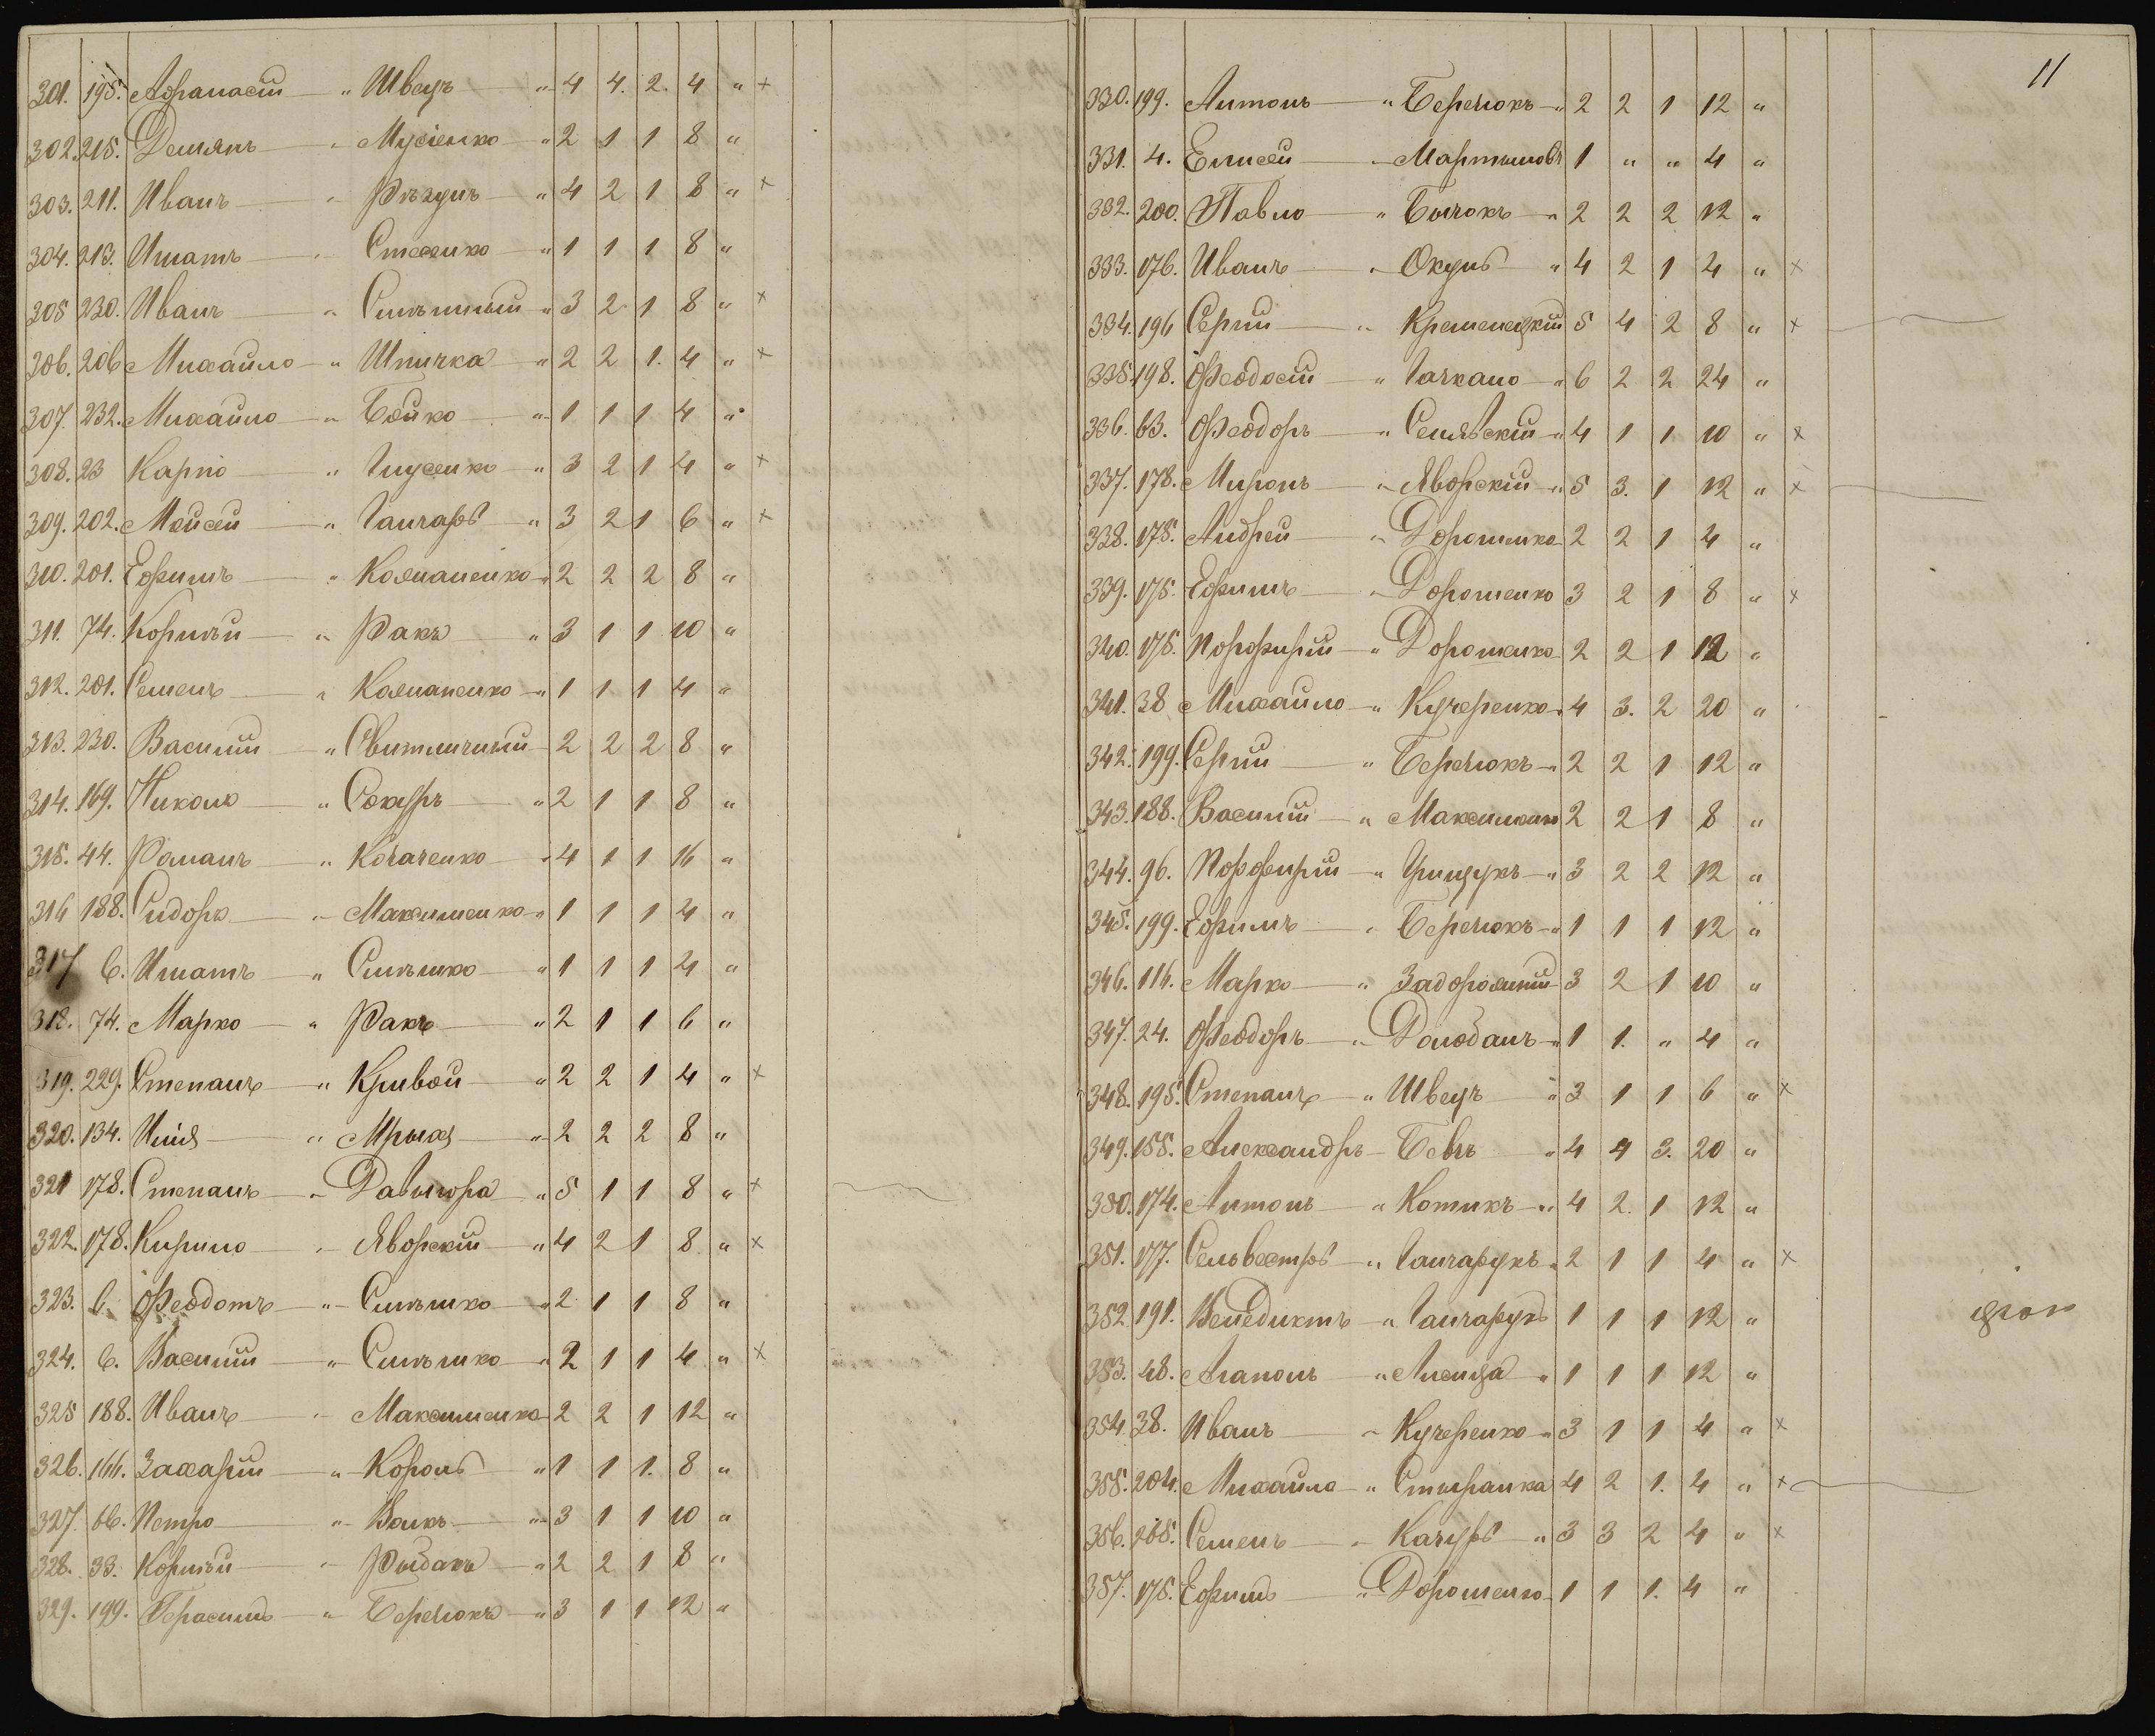 301. 195. Афанасій — „ Швецъ — „ 4 4. 2. 4 „ ×
302. 215. Демянъ — „ Мусіенко „ 2 1 1 8 „
303. 211. Иванъ — „ Рѣзунъ — „ 4 2 1 8 „ ×
304. 213. Игнатъ — „ Стеценко „ 1 1 1 8 „
305 230. Иванъ — „ „ 3 2 1 8 „ ×
306. 206 Михайло — „ Шпичка „ 2 2 1. 4 „ ×
307. 232. Михайло — „ Бойко „ 1 1 1 4 „
308. 23 Карпо — „ Глущенко „ 3 2 1 4 „ ×
309. 202. Мойсей — „ Ганчаръ „ 3 2 1 6 „ ×
310. 201. Ефимъ — „ „ 2 2 2 8 „
311. 74. Корнѣй — „ Ракъ „ 3 1 1 10 „
312. 201. Семенъ — „ „ 1 1 1 4 „
313. 230. Василій — „ Свитличный 2 2 2 8 „
314. 169. Никола — „ Сокуръ „ 2 1 1 8 „
315. 44. Романъ — „ „ 4 1 1 16 „
316 188. Сидоръ — „ Максименко „ 1 1 1 4 „
317 6. Игнатъ — „ Синѣшко „ 1 1 1 4 „
318. 74. Марко — „ Ракъ „ 2 1 1 6 „
319. 229. Степанъ — „ Кривой — „ 2 2 1 4 „ ×
320. 134. Илія — „ Мрыхъ — „ 2 2 2 8 „
321 178. Степанъ — „ Давыгора „ 5 1 1 8 „ ×
322. 178. Кирило — „ Яворскій — „ 4 2 1 8 „ ×
323. 6. Феодотъ — „ Синѣшко „ 2 1 1 8 „
324. 6. Василій — „ Синѣшко „ 2 1 1 4 „ ×
325 188. Иванъ — „ Максименко 2 2 1 12 „
326. 166. Захарій — „ Король „ 1 1 1. 8 „
327. 66. Петро — „ Волкъ „ 3 1 1 10 „
328. 33. Корнѣй — „ Рыбакъ „ 2 2 1 8 „
329. 199. Герасимъ — „ Берелюкъ „ 3 1 1 12 „
11
330. 199. Антонъ — „ Берелюкъ „ 2 2 1 12 „
331. 4. Елисей — „ Мартыновъ 1 „ „ 4 „
332. 200. Павло — „ Бычокъ „ 2 2 2 12 „
333. 176. Иванъ — „ Окунь „ 4 2 1 4 „ ×
334. 196 Сергій — „ Кременецкій 5 4 2 8 „ ×
335. 198. Феодосій — „ Гачкало „ 6 2 2 24 „
336. 63. Феодоръ — „ „ 4 1 1 10 „ ×
337. 178. Миронъ — „ Яворскій „ 5 3. 1 12 „ ×
338. 175. Андрей — „ Дорошенко 2 2 1 4 „
339. 175. Ефимъ — „ Дорошенко 3 2 1 8 „ ×
340. 175. Порфирій — „ Дорошенко 2 2 1 12 „
341. 38 Михайло — „ Кучеренко „ 4 3. 2 20 „
342. 199. Сергій — „ Берелюкъ „ 2 2 1 12 „
343. 188. Василій — „ 2 2 1 8 „
344. 96. Порфирій — „ Грищукъ „ 3 2 2 12 „
345. 199. Ефимъ — „ Берелюкъ „ 1 1 1 12 „
346. 116. Марко — „ Задорожній 3 2 1 10 „
347. 24. Феодоръ — „ Долобанъ „ 1 1. „ 4 „
348. 195. Степанъ — „ Швецъ „ 3 1 1 6 „ ×
349. 155. Александръ — Бевзъ „ 4 4 3. 20 „
350. 174. Антонъ — „ Котикъ „ 4 2. 1 12 „
351. 177. Сельвестръ — „ Ганчарукъ „ 2 1 1 4 „ ×
352. 191. Венедиктъ — „ Ганчарукъ 1 1 1 12 „
353. 48. Агапонъ — „ Лисица „ 1 1 1 12 „
354. 38. Иванъ — „ Кучеренко „ 3 1 1 4 „ ×
355. 204. Михайло — „ 4 2 1. 4 „ ×
356. 205. Семенъ — „ Качуръ „ 3 3 2 4 „ ×
357. 175. Ефимъ — „ Дорошенко 1 1 1. 4 „